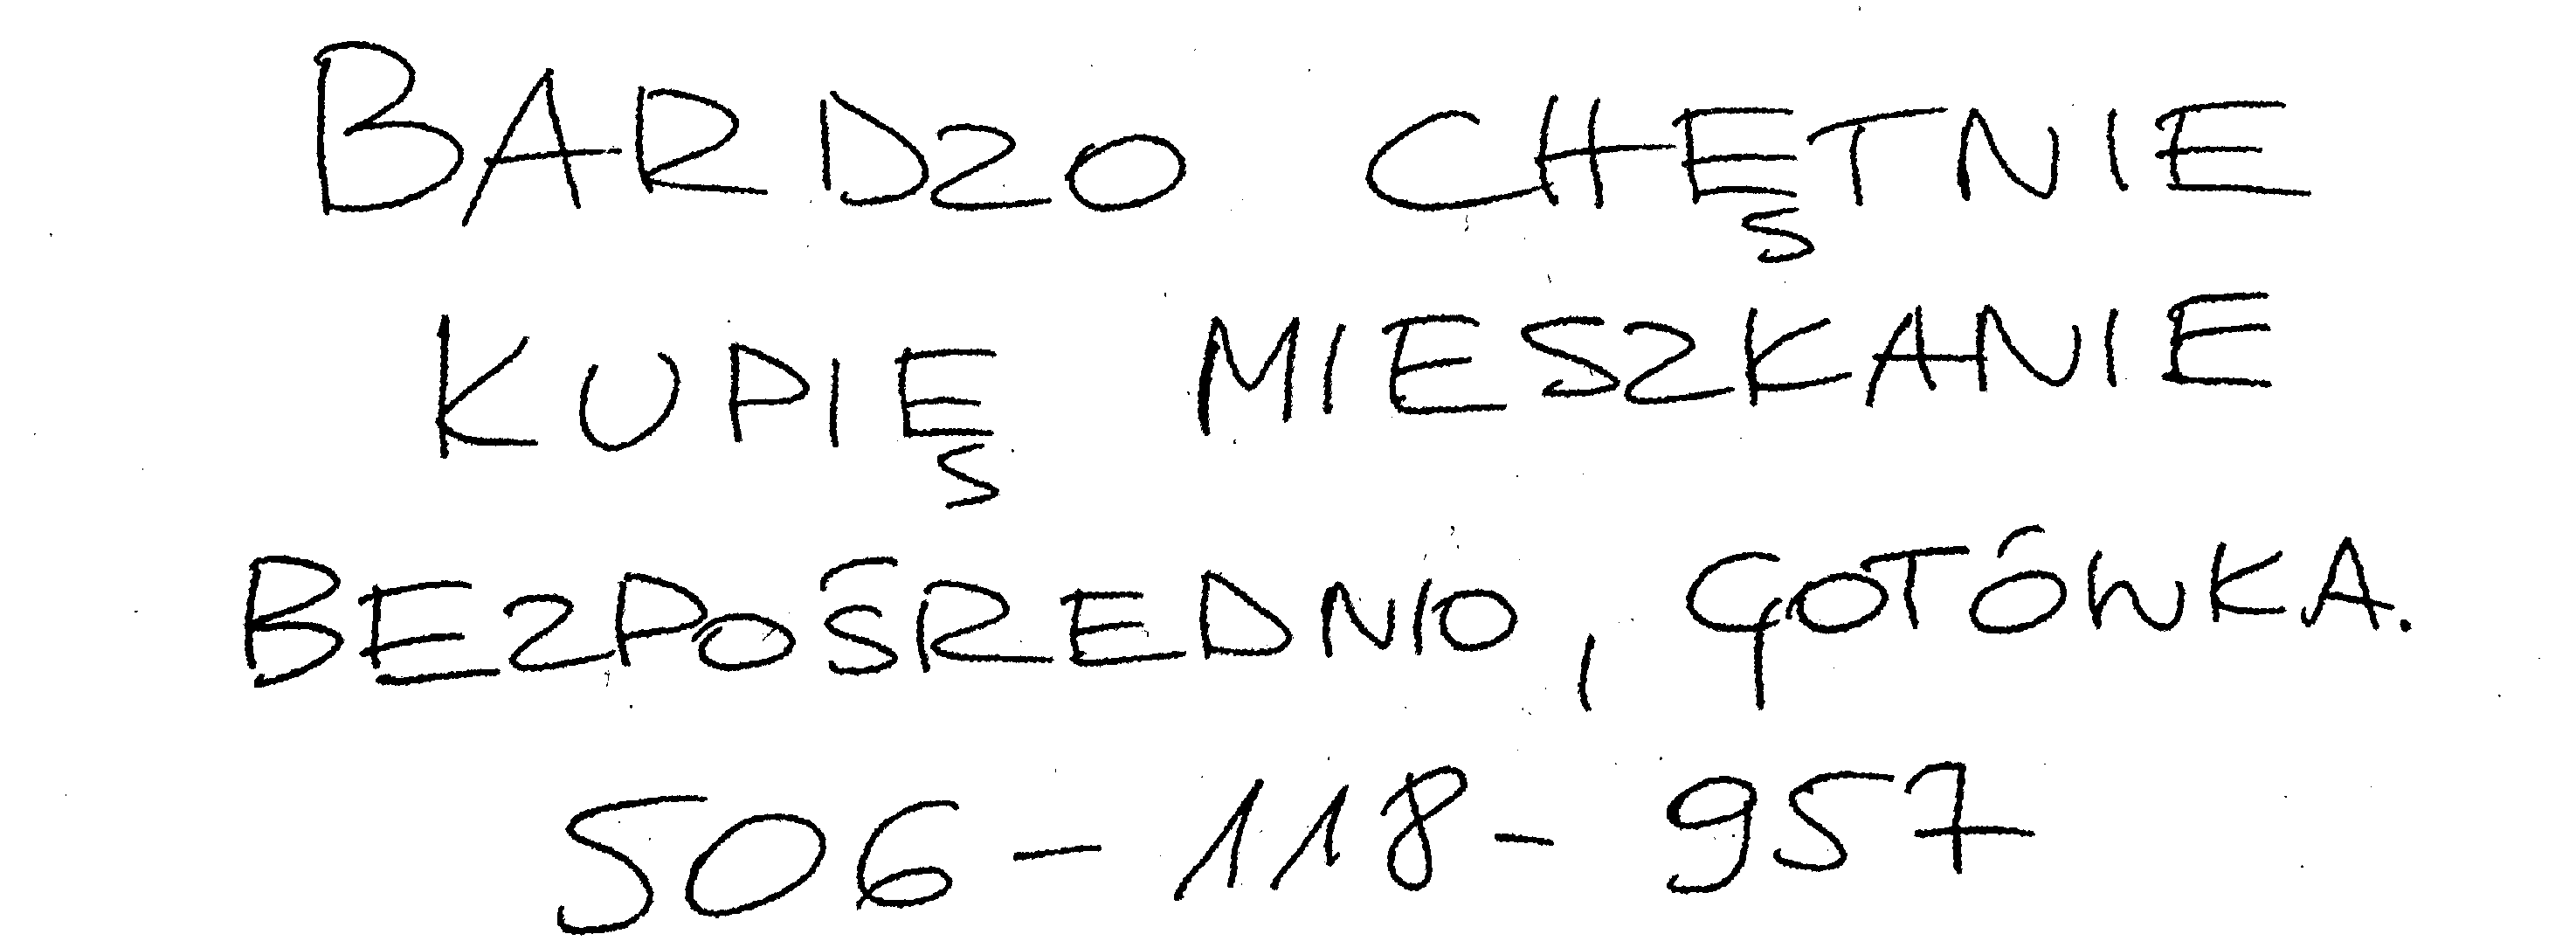 BARDZO CHĘTNIE
KUPIĘ MIESZKANIE
BEZPOŚREDNIO, GOTÓWKA.
506-118-957